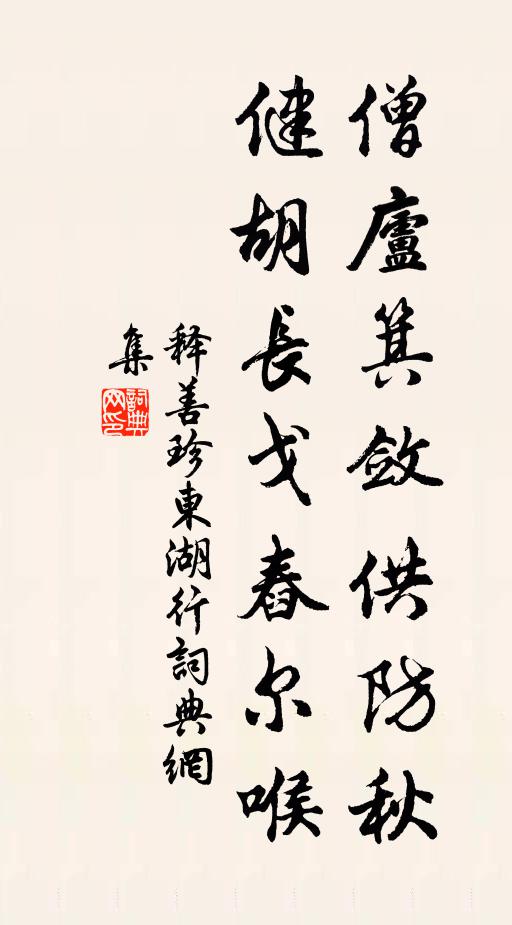 僧廬箕斂供防秋
健胡長戈舂尔喉
释善珍東湖行詞典網
集
詞典
网印